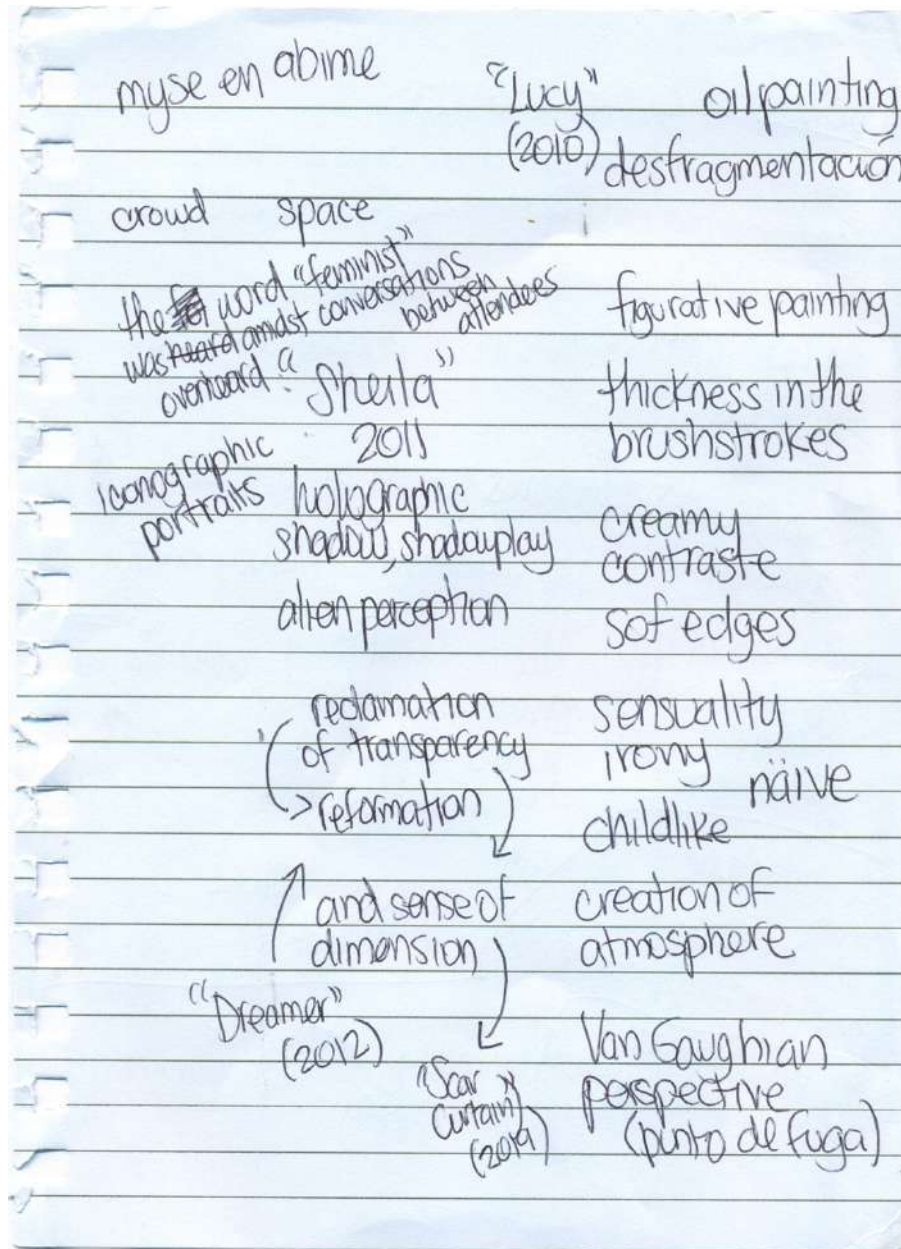 myse en abime
"Lucy"
(2010)
oil painting
desfragmentación
crowd space
the word "feminist"
was heard amidst conversations
overheard between
attendees
figurative painting
"Sheila"
2011
thickness in the
brushstrokes
iconographic
portraits
holographic
shadow, shadowplay
creamy
contraste
alien perception
sof edges
reclamation
of transparency
reformation
sensuality
irony
näive
childlike
and sense of
dimension
creation of
atmosphere
"Dreamer"
(2012)
"Scar
Curtain"
(2019)
Van Gaughian
perspective
(punto de fuga)